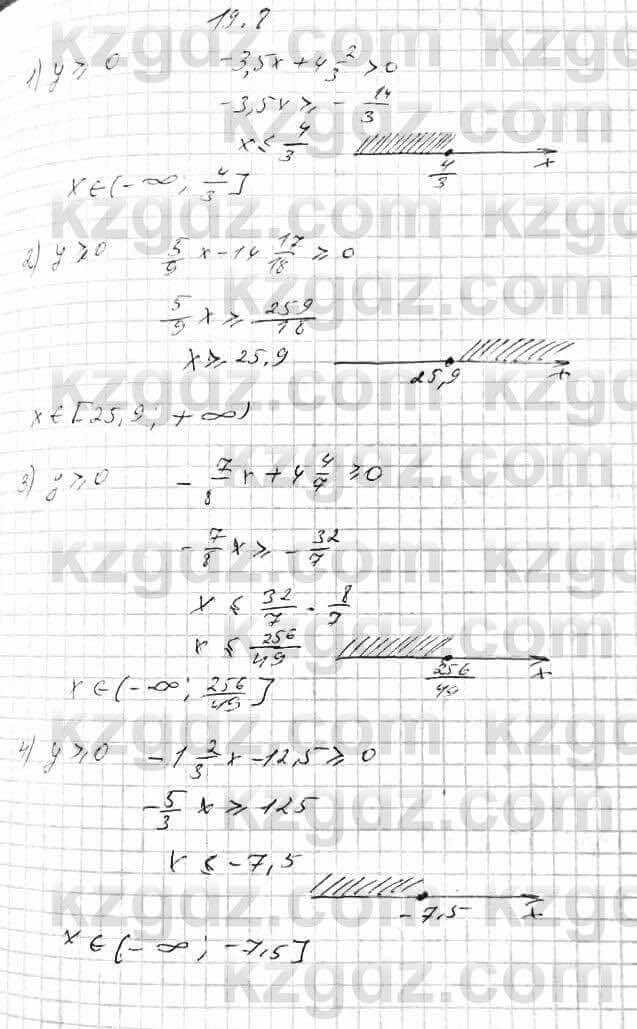 19.8
1) y ≥ 0 -3,5x + 4 2/3 ≥ 0
-3,5x ≥ - 14/3
x ≤ 4/3
4/3 x
x ∈ (-∞; 4/3]
2) y ≥ 0 5/9 x - 14 17/18 ≥ 0
5/9 x ≥ 259/18
x ≥ 25,9
25,9 x
x ∈ [25,9; +∞)
3) y ≥ 0 - 7/8 x + 4 4/7 ≥ 0
- 7/8 x ≥ - 32/7
x ≤ 32/7 · 8/7
x ≤ 256/49
256/49 x
x ∈ (-∞; 256/49]
4) y ≥ 0 -1 2/3 x - 12,5 ≥ 0
- 5/3 x ≥ 125
x ≤ -7,5
-7,5 x
x ∈ (-∞; -7,5]
kzgdz.com